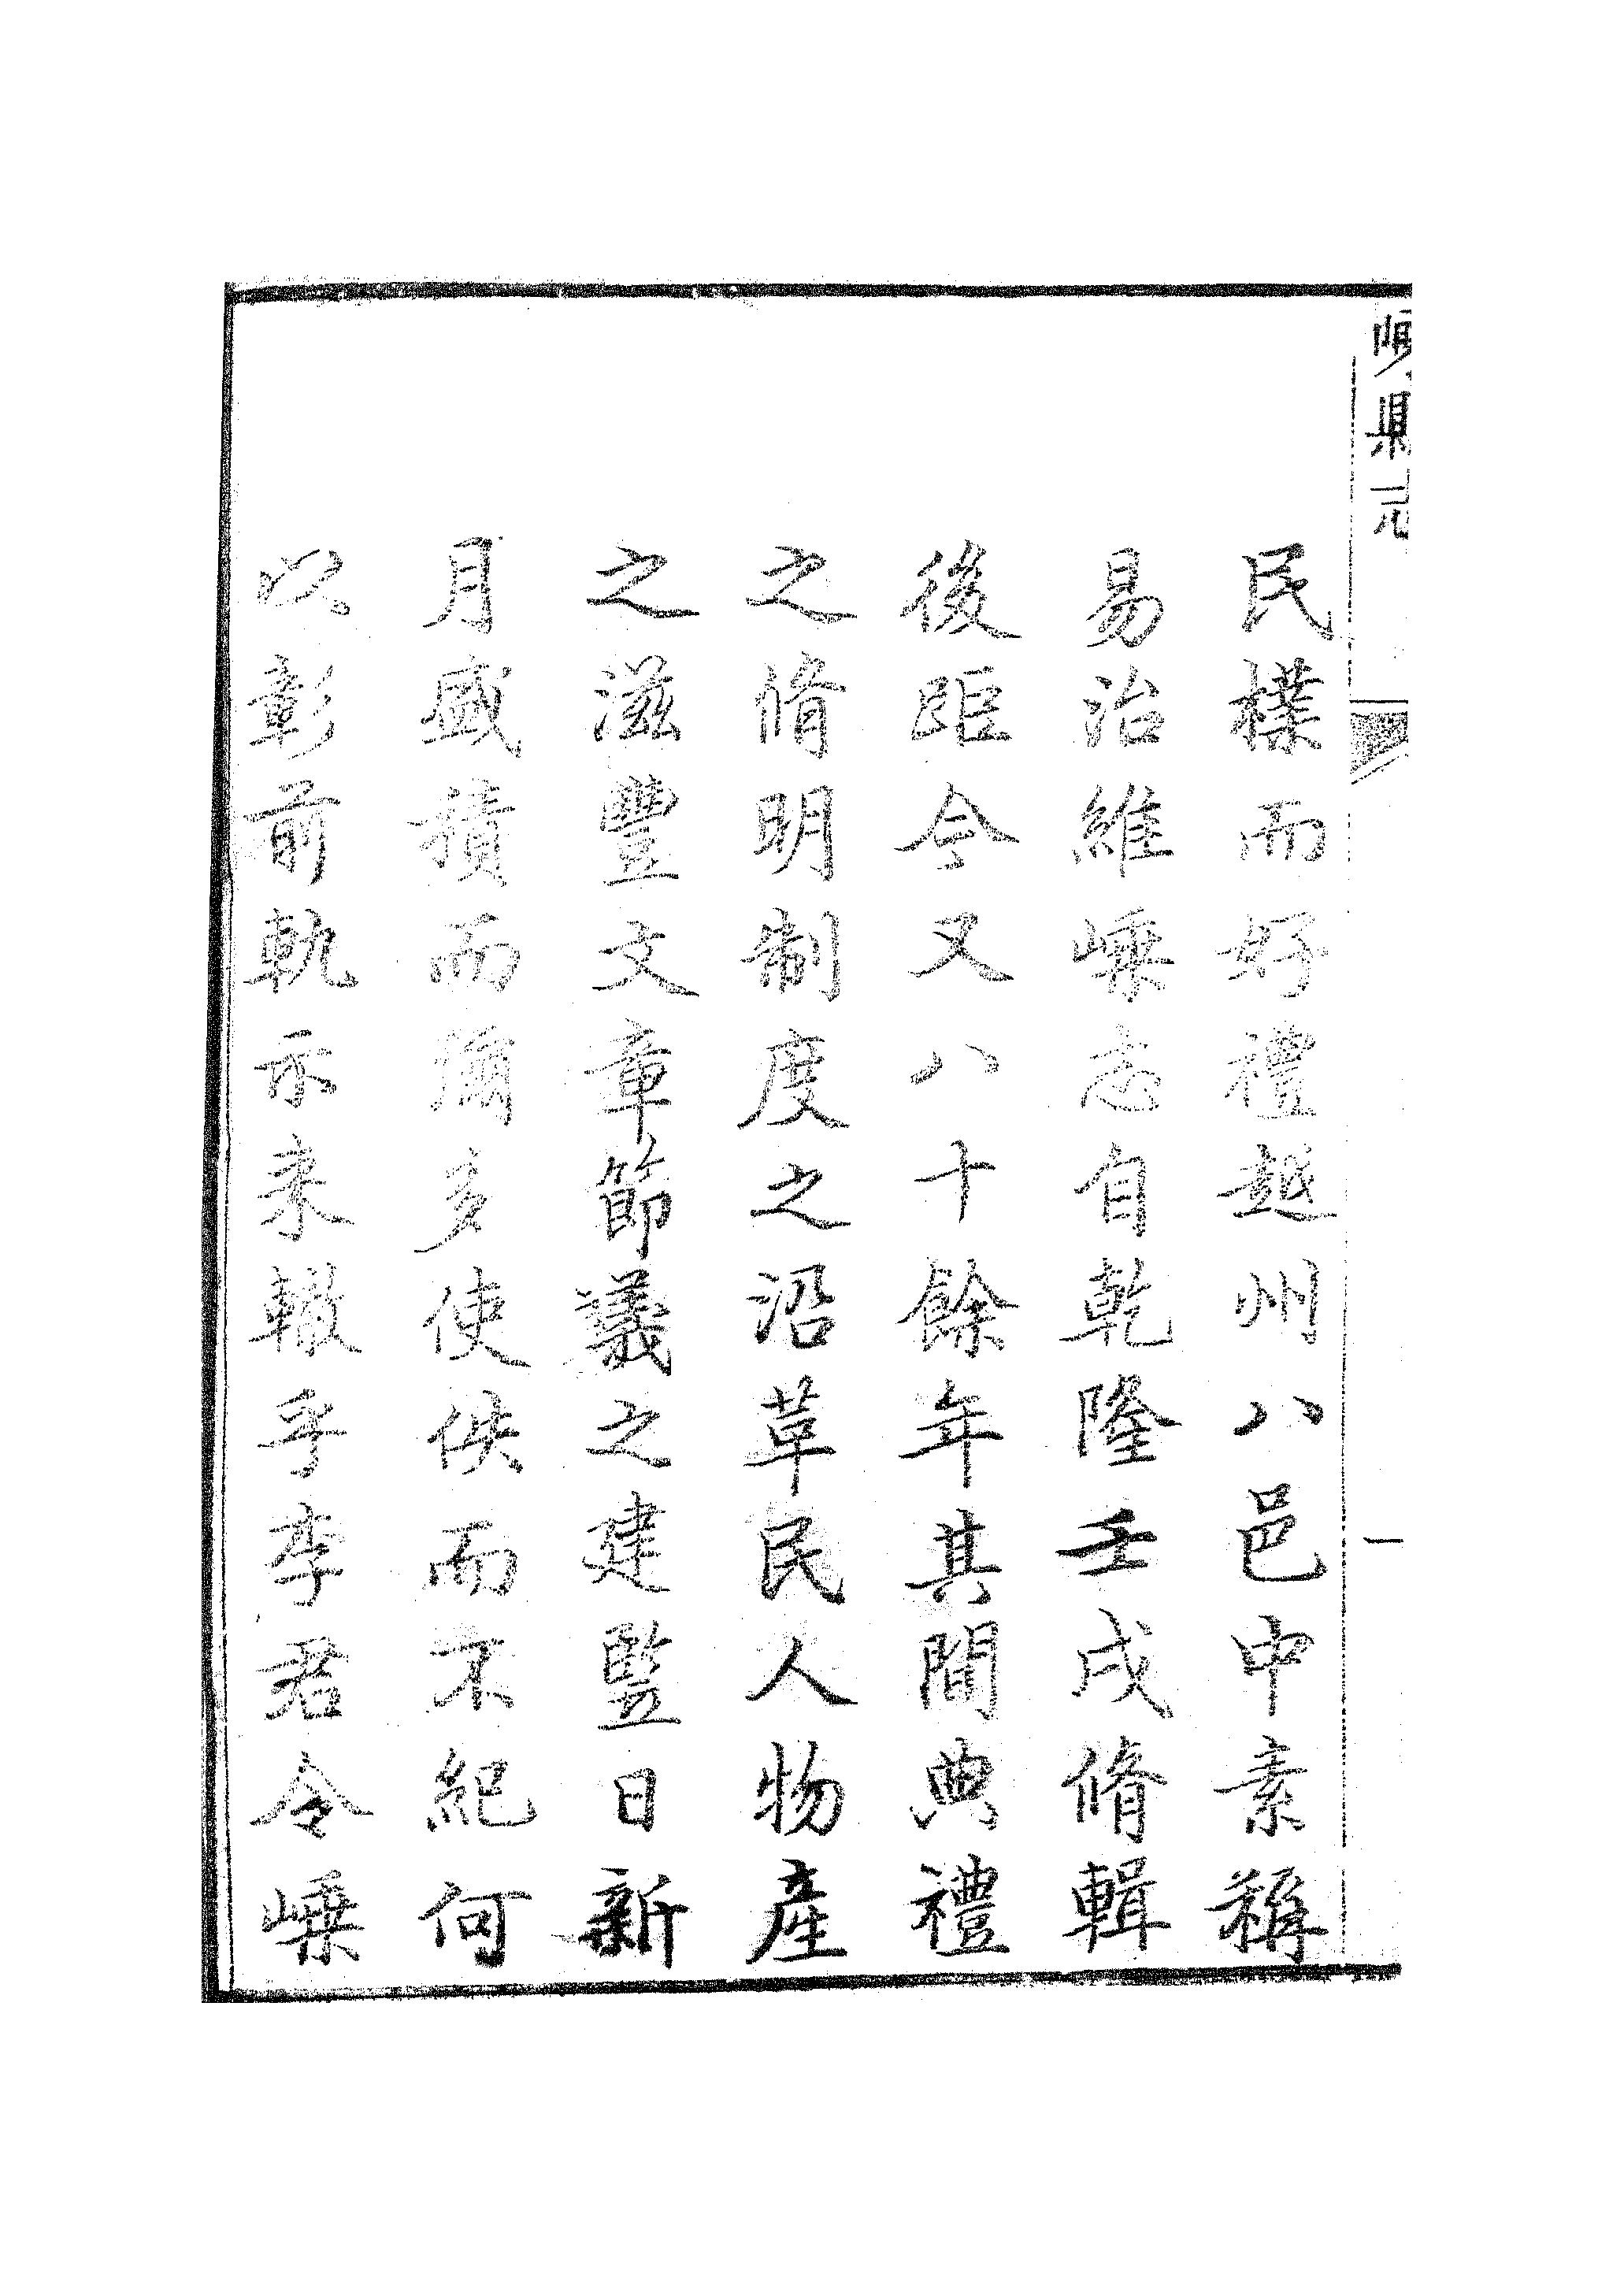 嵊縣志
一
民樸而好禮越州八邑中素稱
易治維嵊志自乾隆壬戌脩輯
後距今又八十餘年其間典禮
之脩明制度之沿革民人物產
之滋豐文章節義之建豎日新
月盛積而彌多使佚而不紀何
以彰前軌示来轍乎李君令嵊